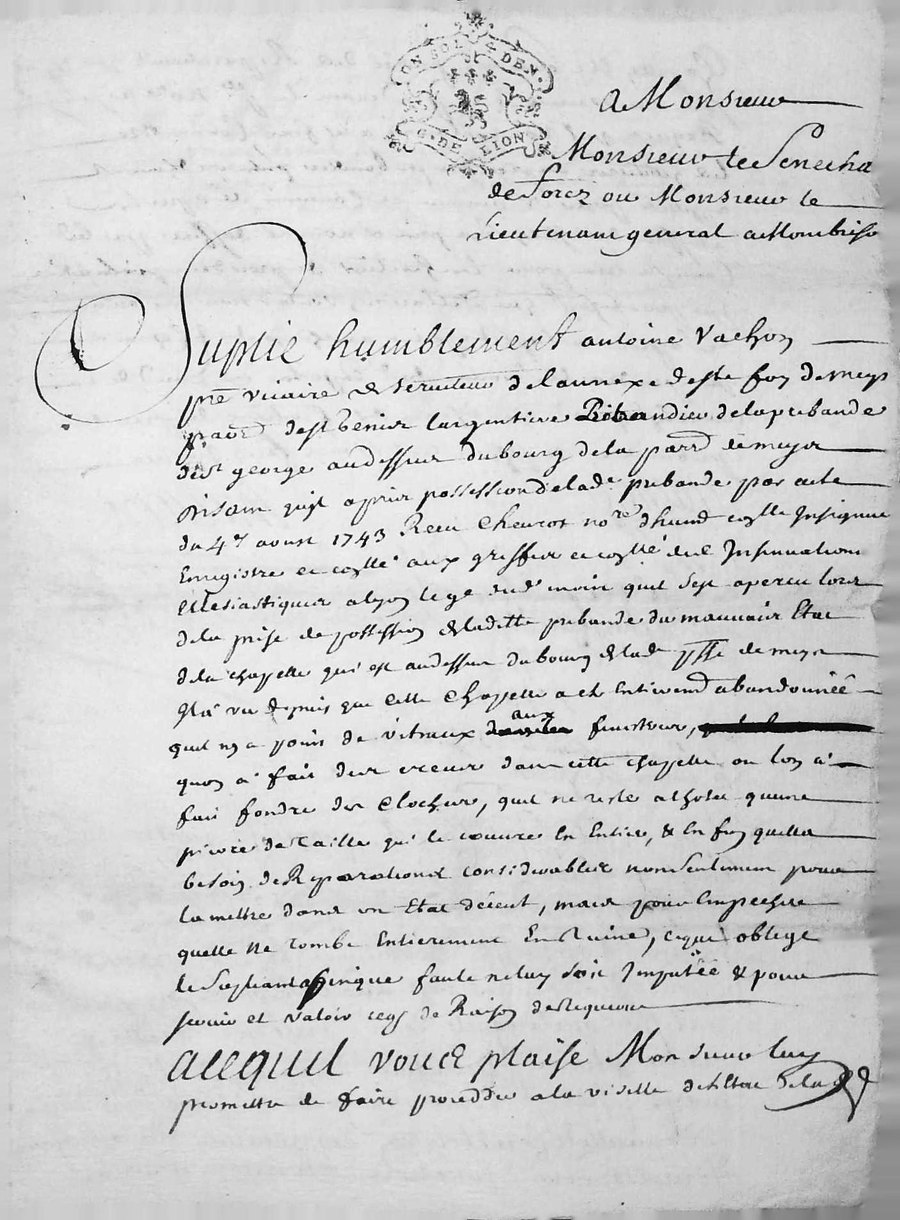 ON SOL 4 DEN.
G. DE LION
A Monsieur
Monsieur le Senecha
de forez ou Monsieur le
Lieutenant general a Montbriso
Suplie humblement antoine Vachon
pre vicaire & serviteur de lannexe de ste foy de meys
parr de st Genier largentiere Prebandier de la prebande
de st george au dessus du bourg de la parr de meys
Disant quil a pris possession de lad. prebande par acte
du 4e aoust 1743 Receu Chevrot nore
Enregistre et collé aux greffes et collé des Insinuations
Ecclesiastiques a lyon le 9e du moin quil sest aperceu lors
de la prise de possession de laditte prebande du mauvais Etat
de la chapelle qui est au dessus du bourg de lad. psse de meys
Il a vu depuis que cette Chapelle a eté Entierem abandonnéé
quil ny a point de vitraux aux fenestres,
quon a fait des creux dans cette chapelle ou lon a
fait fondre des Cloches, quil ne reste a lhotel quune
pierre de Taille qui le couvre En Entier, & En fin quelle a
besoin de Reparations considerables non seulement pour
la mettre dans un Etat décent, mais pour Empecher
quelle ne Tombe Entierement En Ruine, ce qui oblige
le Supliant affinque faute ne luy soit Imputéé & pour
servir et valoir ceque de Raison de Requerir
Acequil vous plaise Monsieur luy
permettre de faire proceder a la visitte de lEtat de la